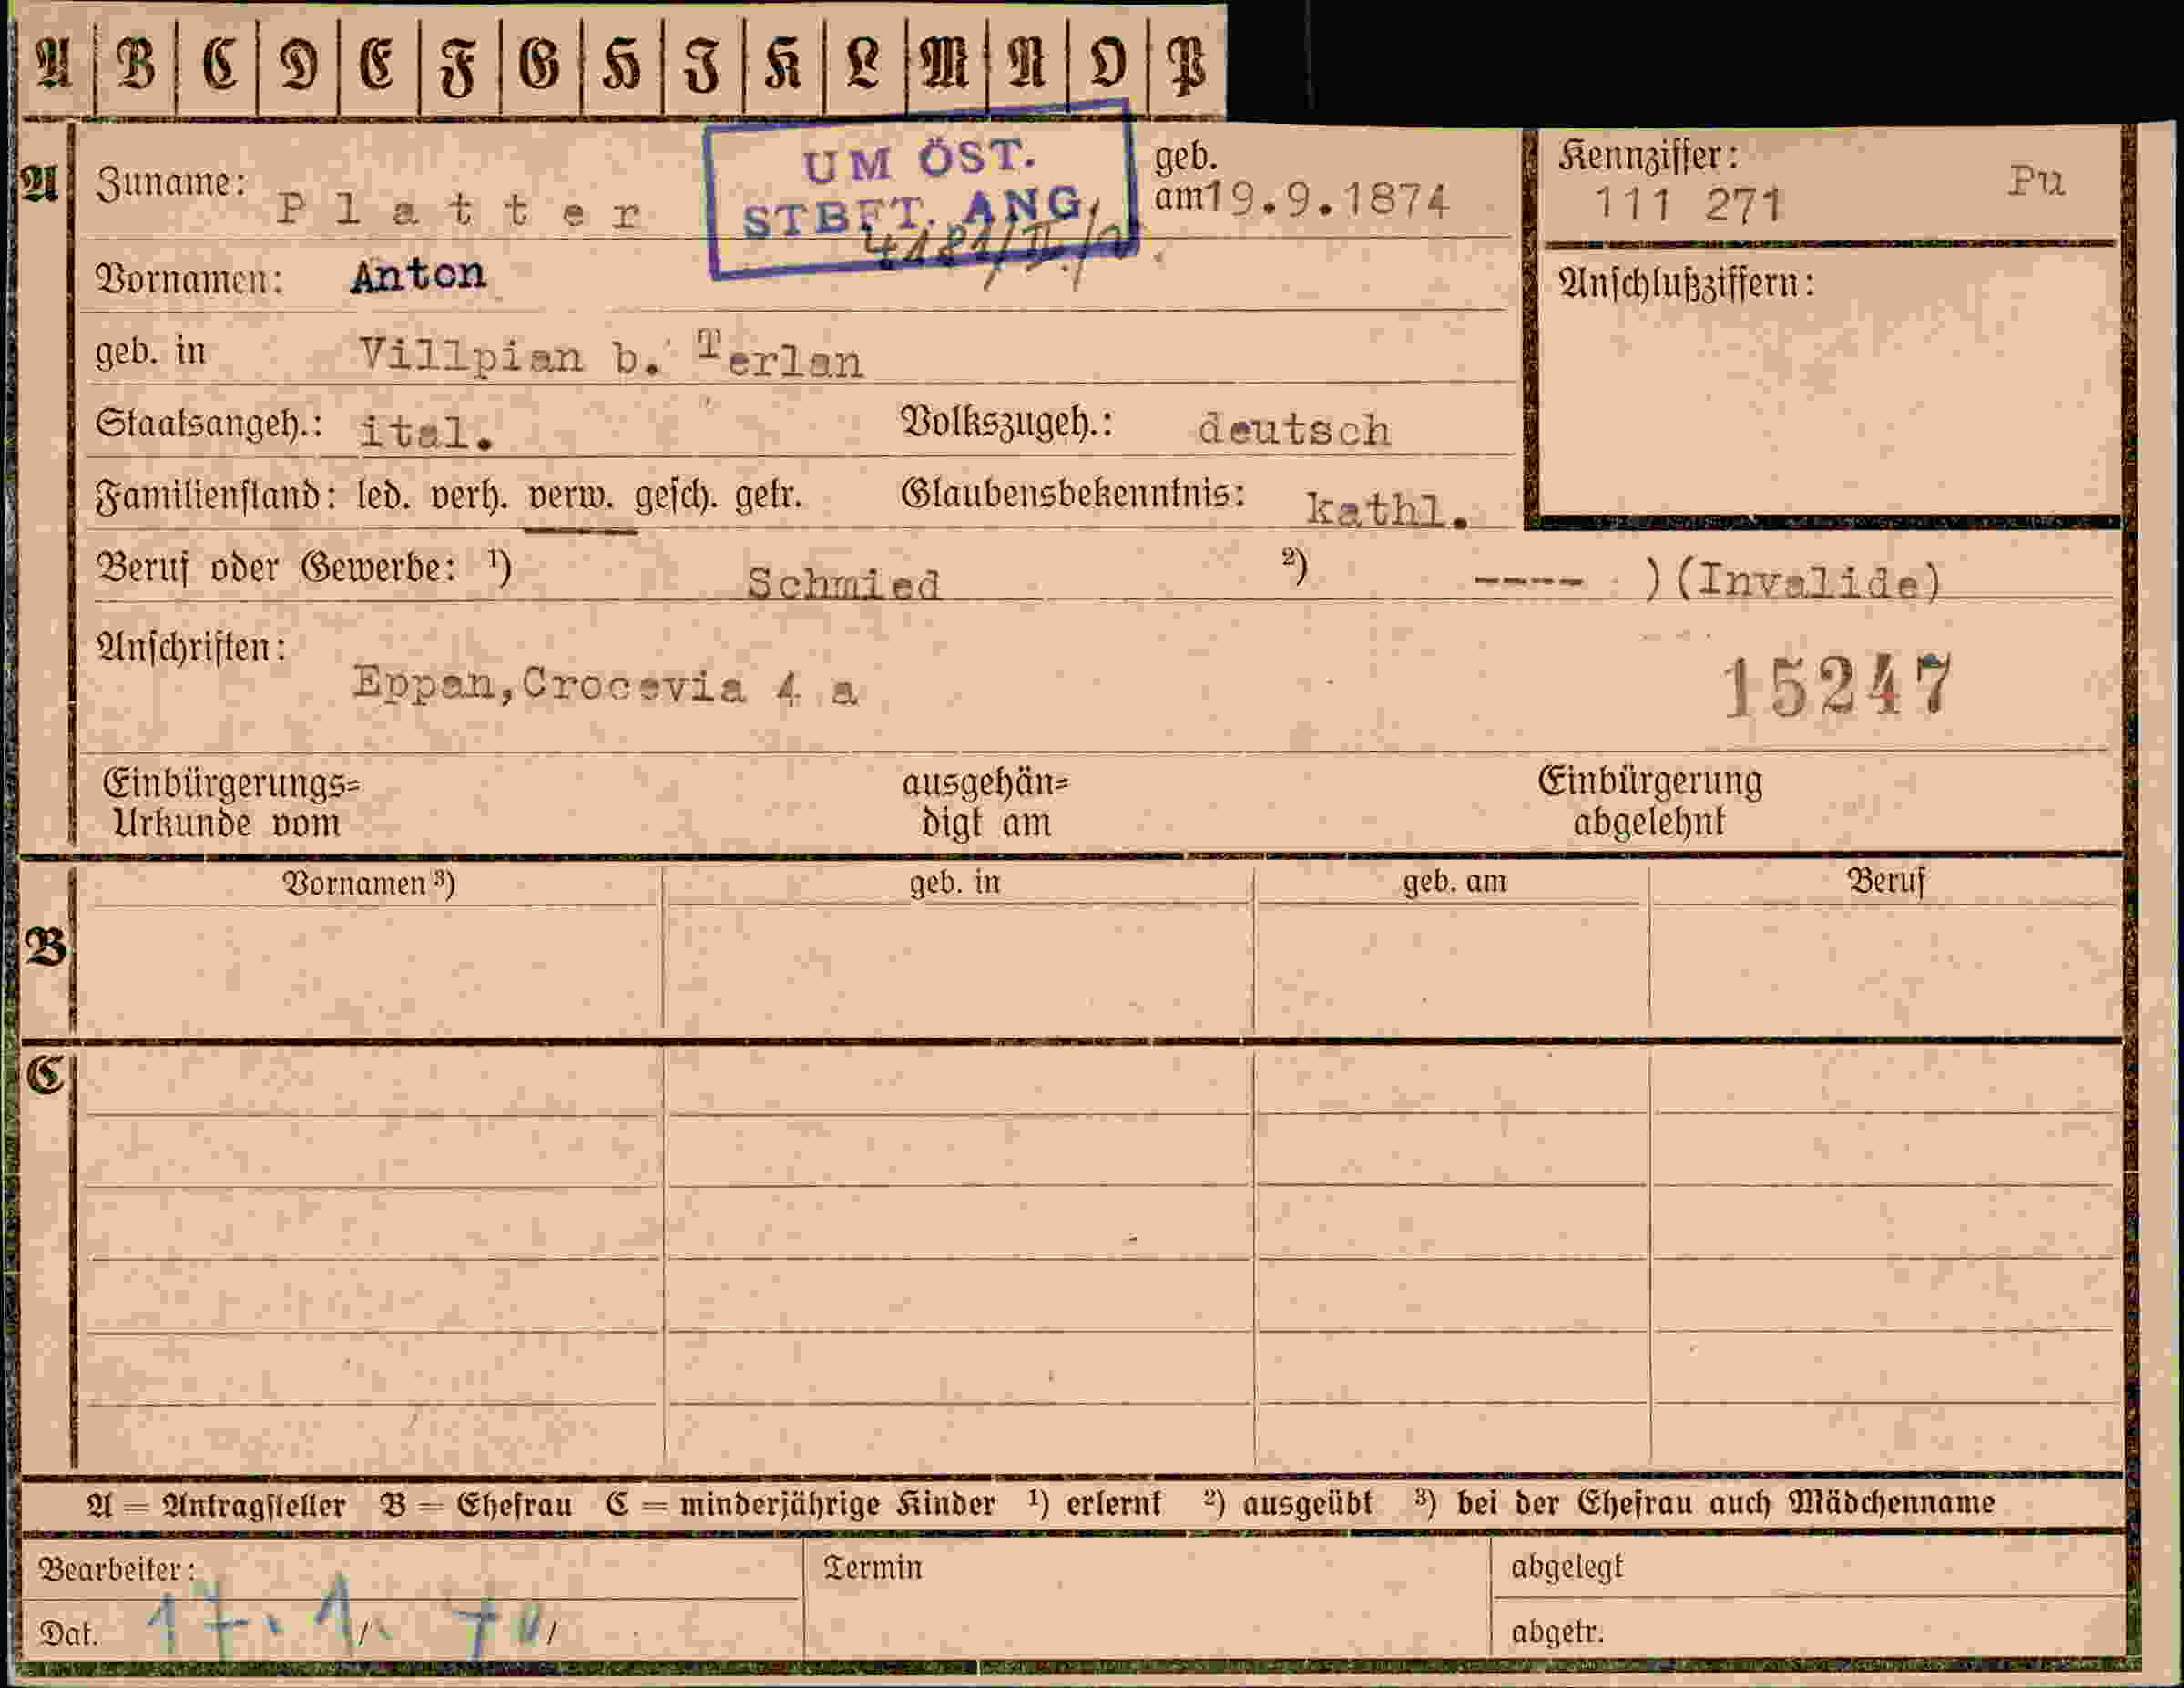 A B C D E F G H I K L M N O P
UM ÖST.
STBFT. ANG.
A
Zuname: Platter
geb. am 19.9.1874
Kennziffer: 111 271 Pu
Vornamen: Anton
Anschlußziffern:
geb. in Villpian b. Terlan
Staatsangeh.: ital. Volkszugeh.: deutsch
Familienstand: led. verh. verw. gesch. getr. Glaubensbekenntnis: kathl.
Beruf oder Gewerbe: ¹) Schmied ²) ---- )(Invalide)
Anschriften: Eppan,Crocevia 4 a
15247
Einbürgerungs= Urkunde vom
ausgehän= digt am
Einbürgerung abgelehnt
Vornamen ³) geb. in geb. am Beruf
B
C
A = Antragsteller B = Ehefrau C = minderjährige Kinder ¹) erlernt ²) ausgeübt ³) bei der Ehefrau auch Mädchenname
Bearbeiter: Termin abgelegt
Dat. 17. 1.
abgetr.